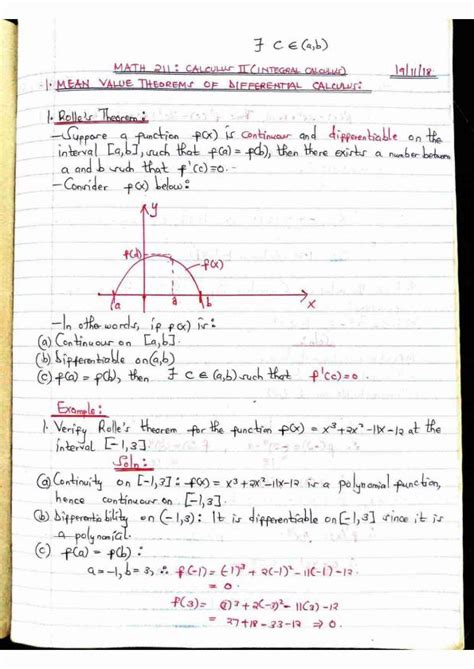 ∃ C ∈ (a,b)
MATH 211: CALCULUS II (INTEGRAL CALCULUS) 19/11/18
1. MEAN VALUE THEOREMS OF DIFFERENTIAL CALCULUS:
1. Rolle's Theorem:
- Suppose a function f(x) is continuous and differentiable on the
interval [a,b], such that f(a) = f(b), then there exists a number between
a and b such that f'(c)=0.
- Consider f(x) below:
y
f(d)
f(x)
a d b x
- In other words, if f(x) is:
(a) Continuous on [a,b].
(b) Differentiable on (a,b)
(c) f(a) = f(b), then ∃ C ∈ (a,b) such that f'(c)=0.
Example:
1. Verify Rolle's theorem for the function f(x) = x³+2x²-11x-12 at the
interval [-1,3].
Soln:
(a) Continuity on [-1,3]: f(x) = x³+2x²-11x-12 is a polynomial function,
hence continuous on [-1,3].
(b) Differentiability on (-1,3): It is differentiable on [-1,3] since it is
a polynomial.
(c) f(a) = f(b):
a=-1, b=3, ∴ f(-1) = (-1)³ + 2(-1)² - 11(-1) -12
= 0.
f(3) = (3)³ + 2(-3)² - 11(3) -12
= 27+18-33-12 ⇒ 0.